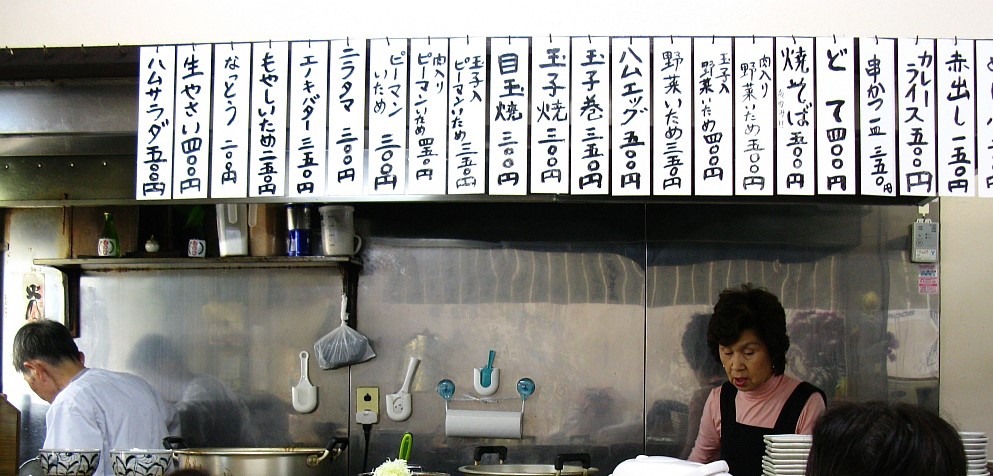 赤出し 一五〇円
カレーライス 五〇〇円
串かつ一皿 三五〇円
どて 四〇〇円
焼そば 五〇〇円
肉入り
野菜いため 五〇〇円
玉子入
野菜いため 四〇〇円
野菜いため 三五〇円
ハムエッグ 五〇〇円
玉子巻 三五〇円
玉子焼 三〇〇円
目玉焼 三〇〇円
玉子入
ピーマンいため 三五〇円
肉入り
ピーマンいため 四五〇円
ピーマン
いため 三〇〇円
ニラタマ 三〇〇円
エノキバター 三五〇円
もやしいため 二五〇円
なっとう 二〇〇円
生やさい 四〇〇円
ハムサラダ 五〇〇円